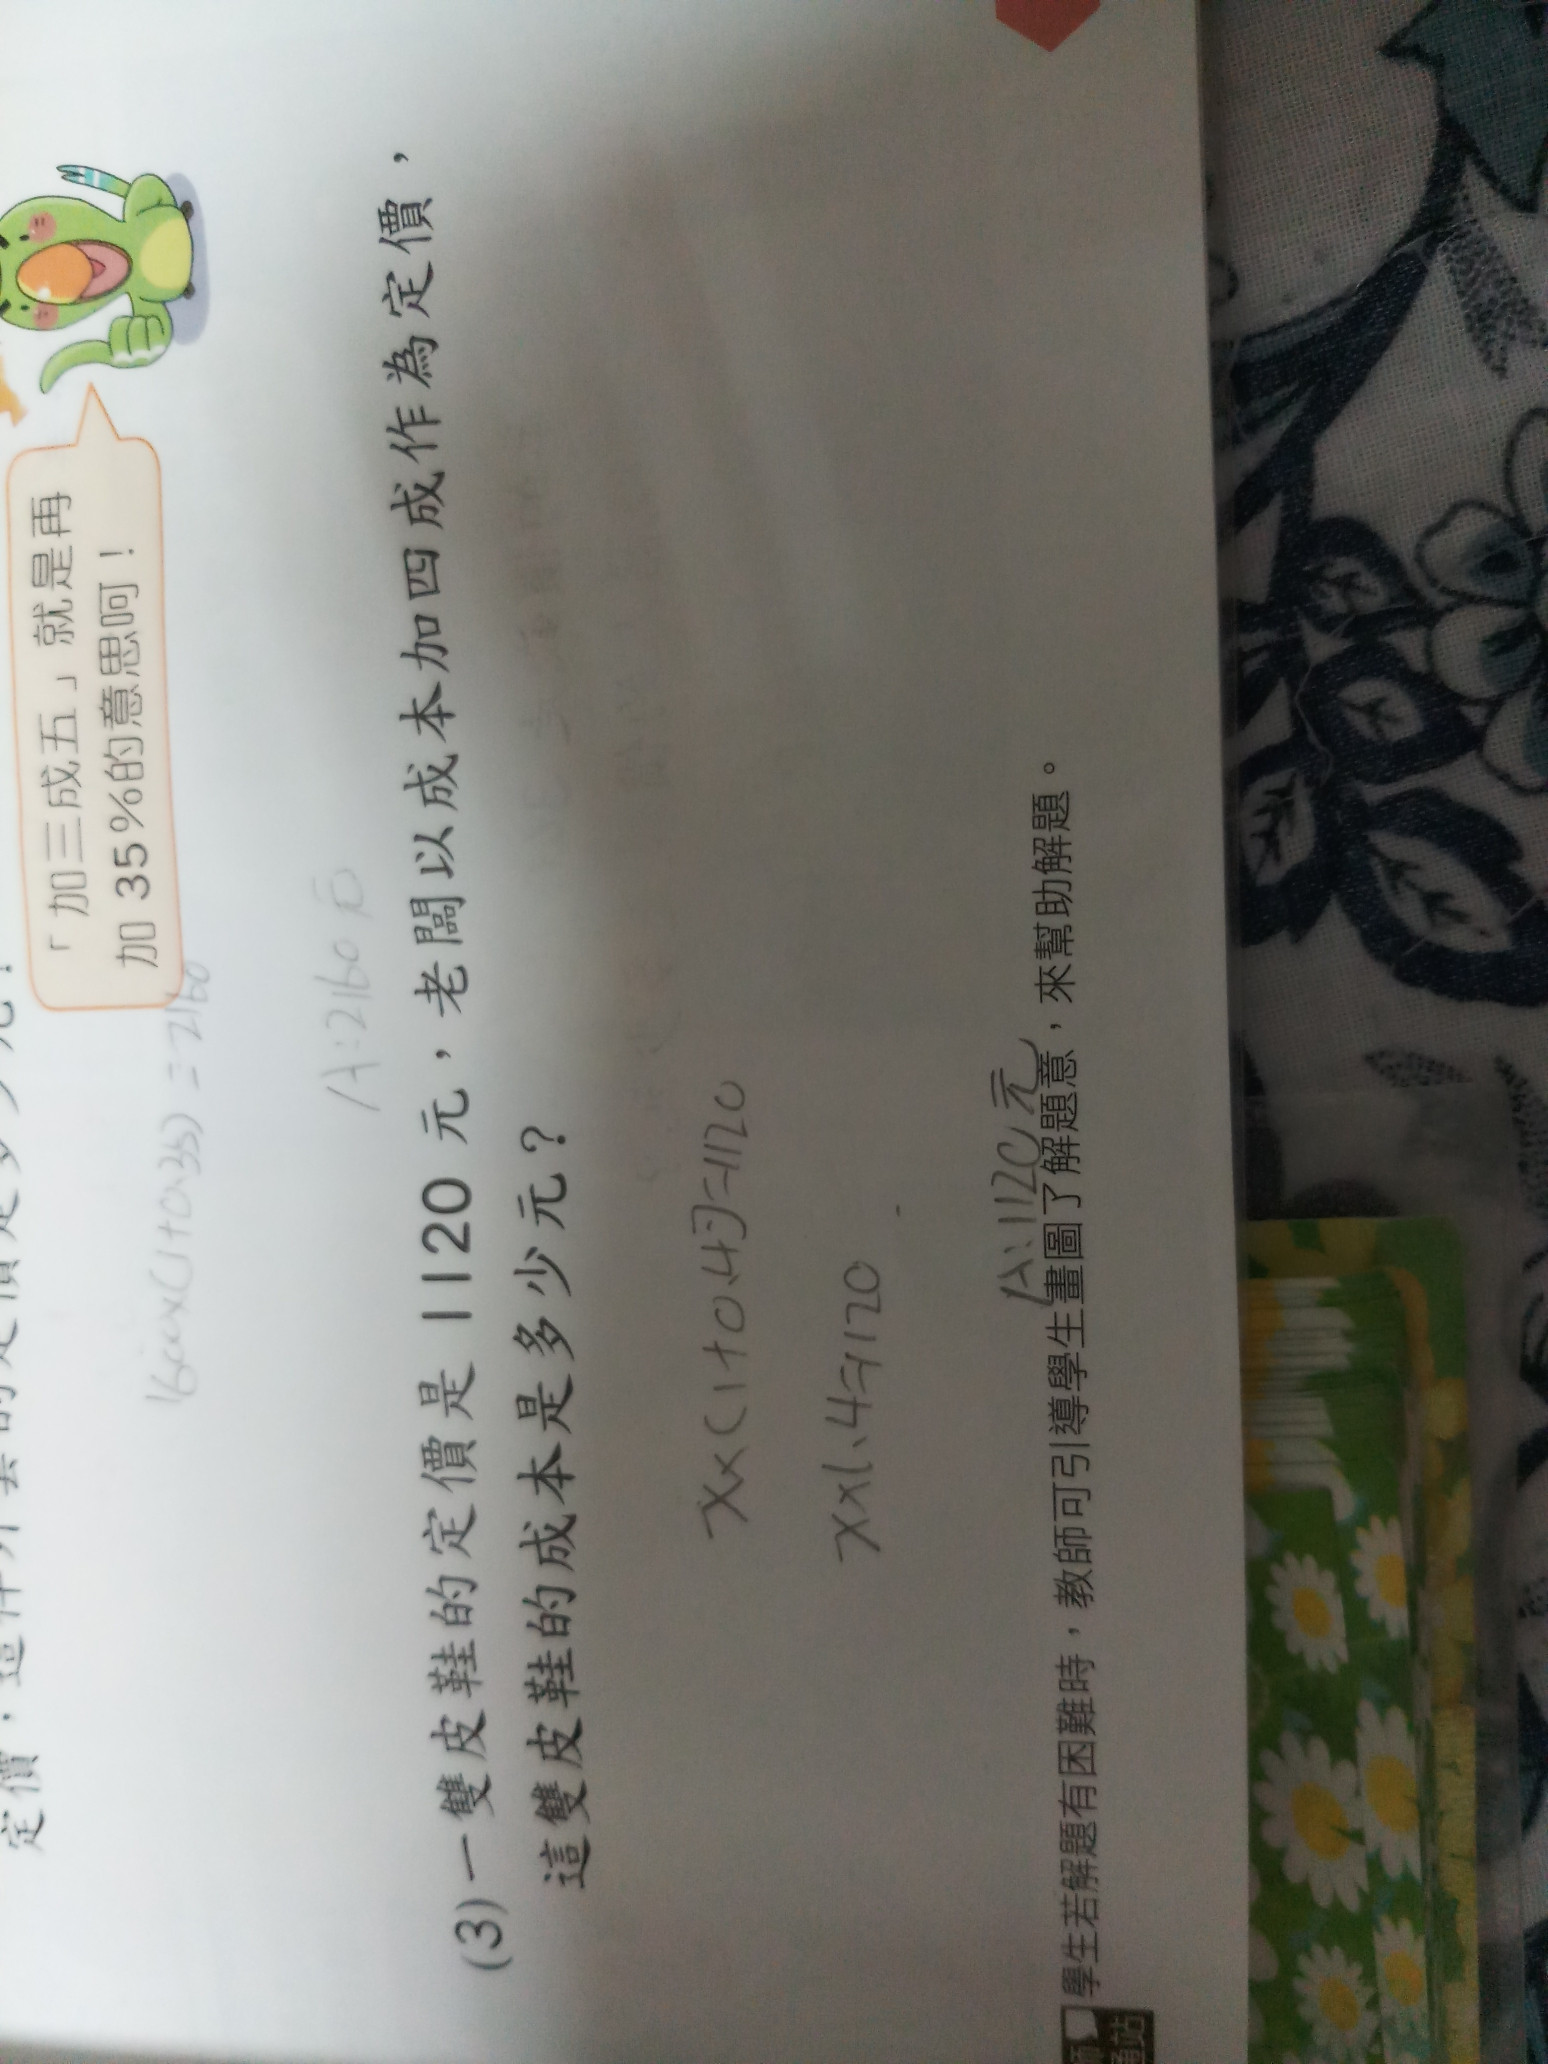 「加三成五」就是再
加 35%的意思呵！
1600×(1+0.35)=2160
A:2160元
(3)一雙皮鞋的定價是1120元，老闆以成本加四成作為定價，
這雙皮鞋的成本是多少元？
x×(1+0.4)=1120
x×1.4=1120
A:1120元
學生若解題有困難時，教師可引導學生畫圖了解題意，來幫助解題。